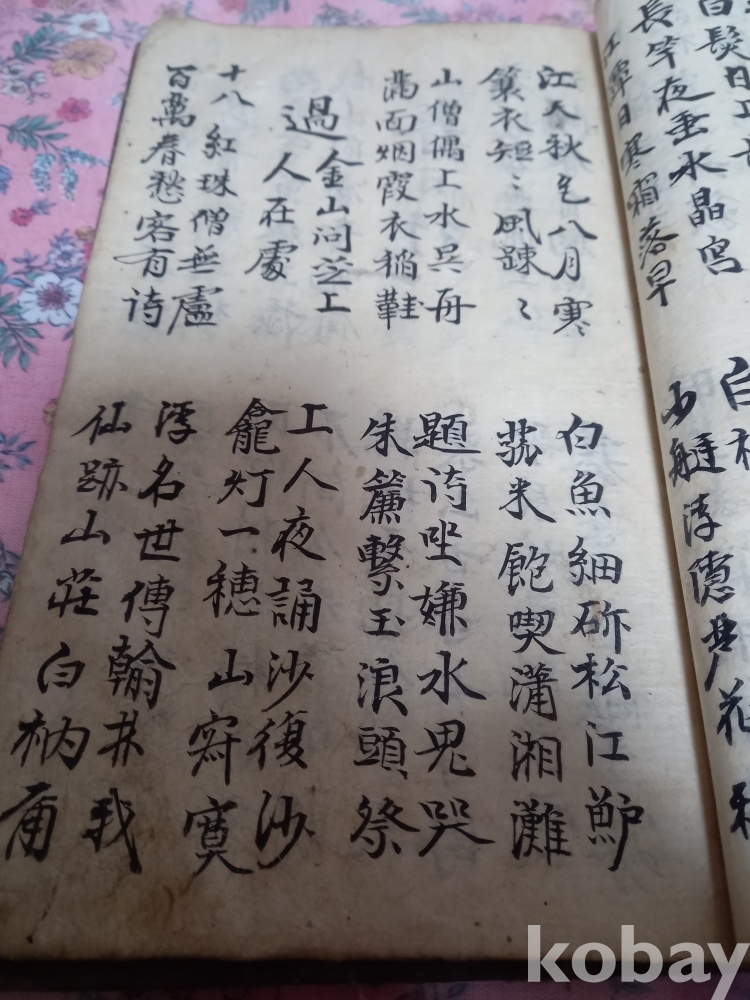 長竿夜垂水晶宮
江潭日寒霜落早
江天秋色八月寒
白魚細斫松江鱸
簑衣短〻風踈〻
菰米飽喫瀟湘灘
山僧偶上水吳舟
題诗坐嫌水鬼哭
滿面烟霞衣稻鞋
朱簾繫玉浪頭祭
過金山问芝上
人在處
十八紅珠僧無盧
上人夜誦沙復沙
百萬春愁客有诗
龕灯一穗山窅寞
浮名世傳翰林我
仙跡山莊白衲甫
kobay